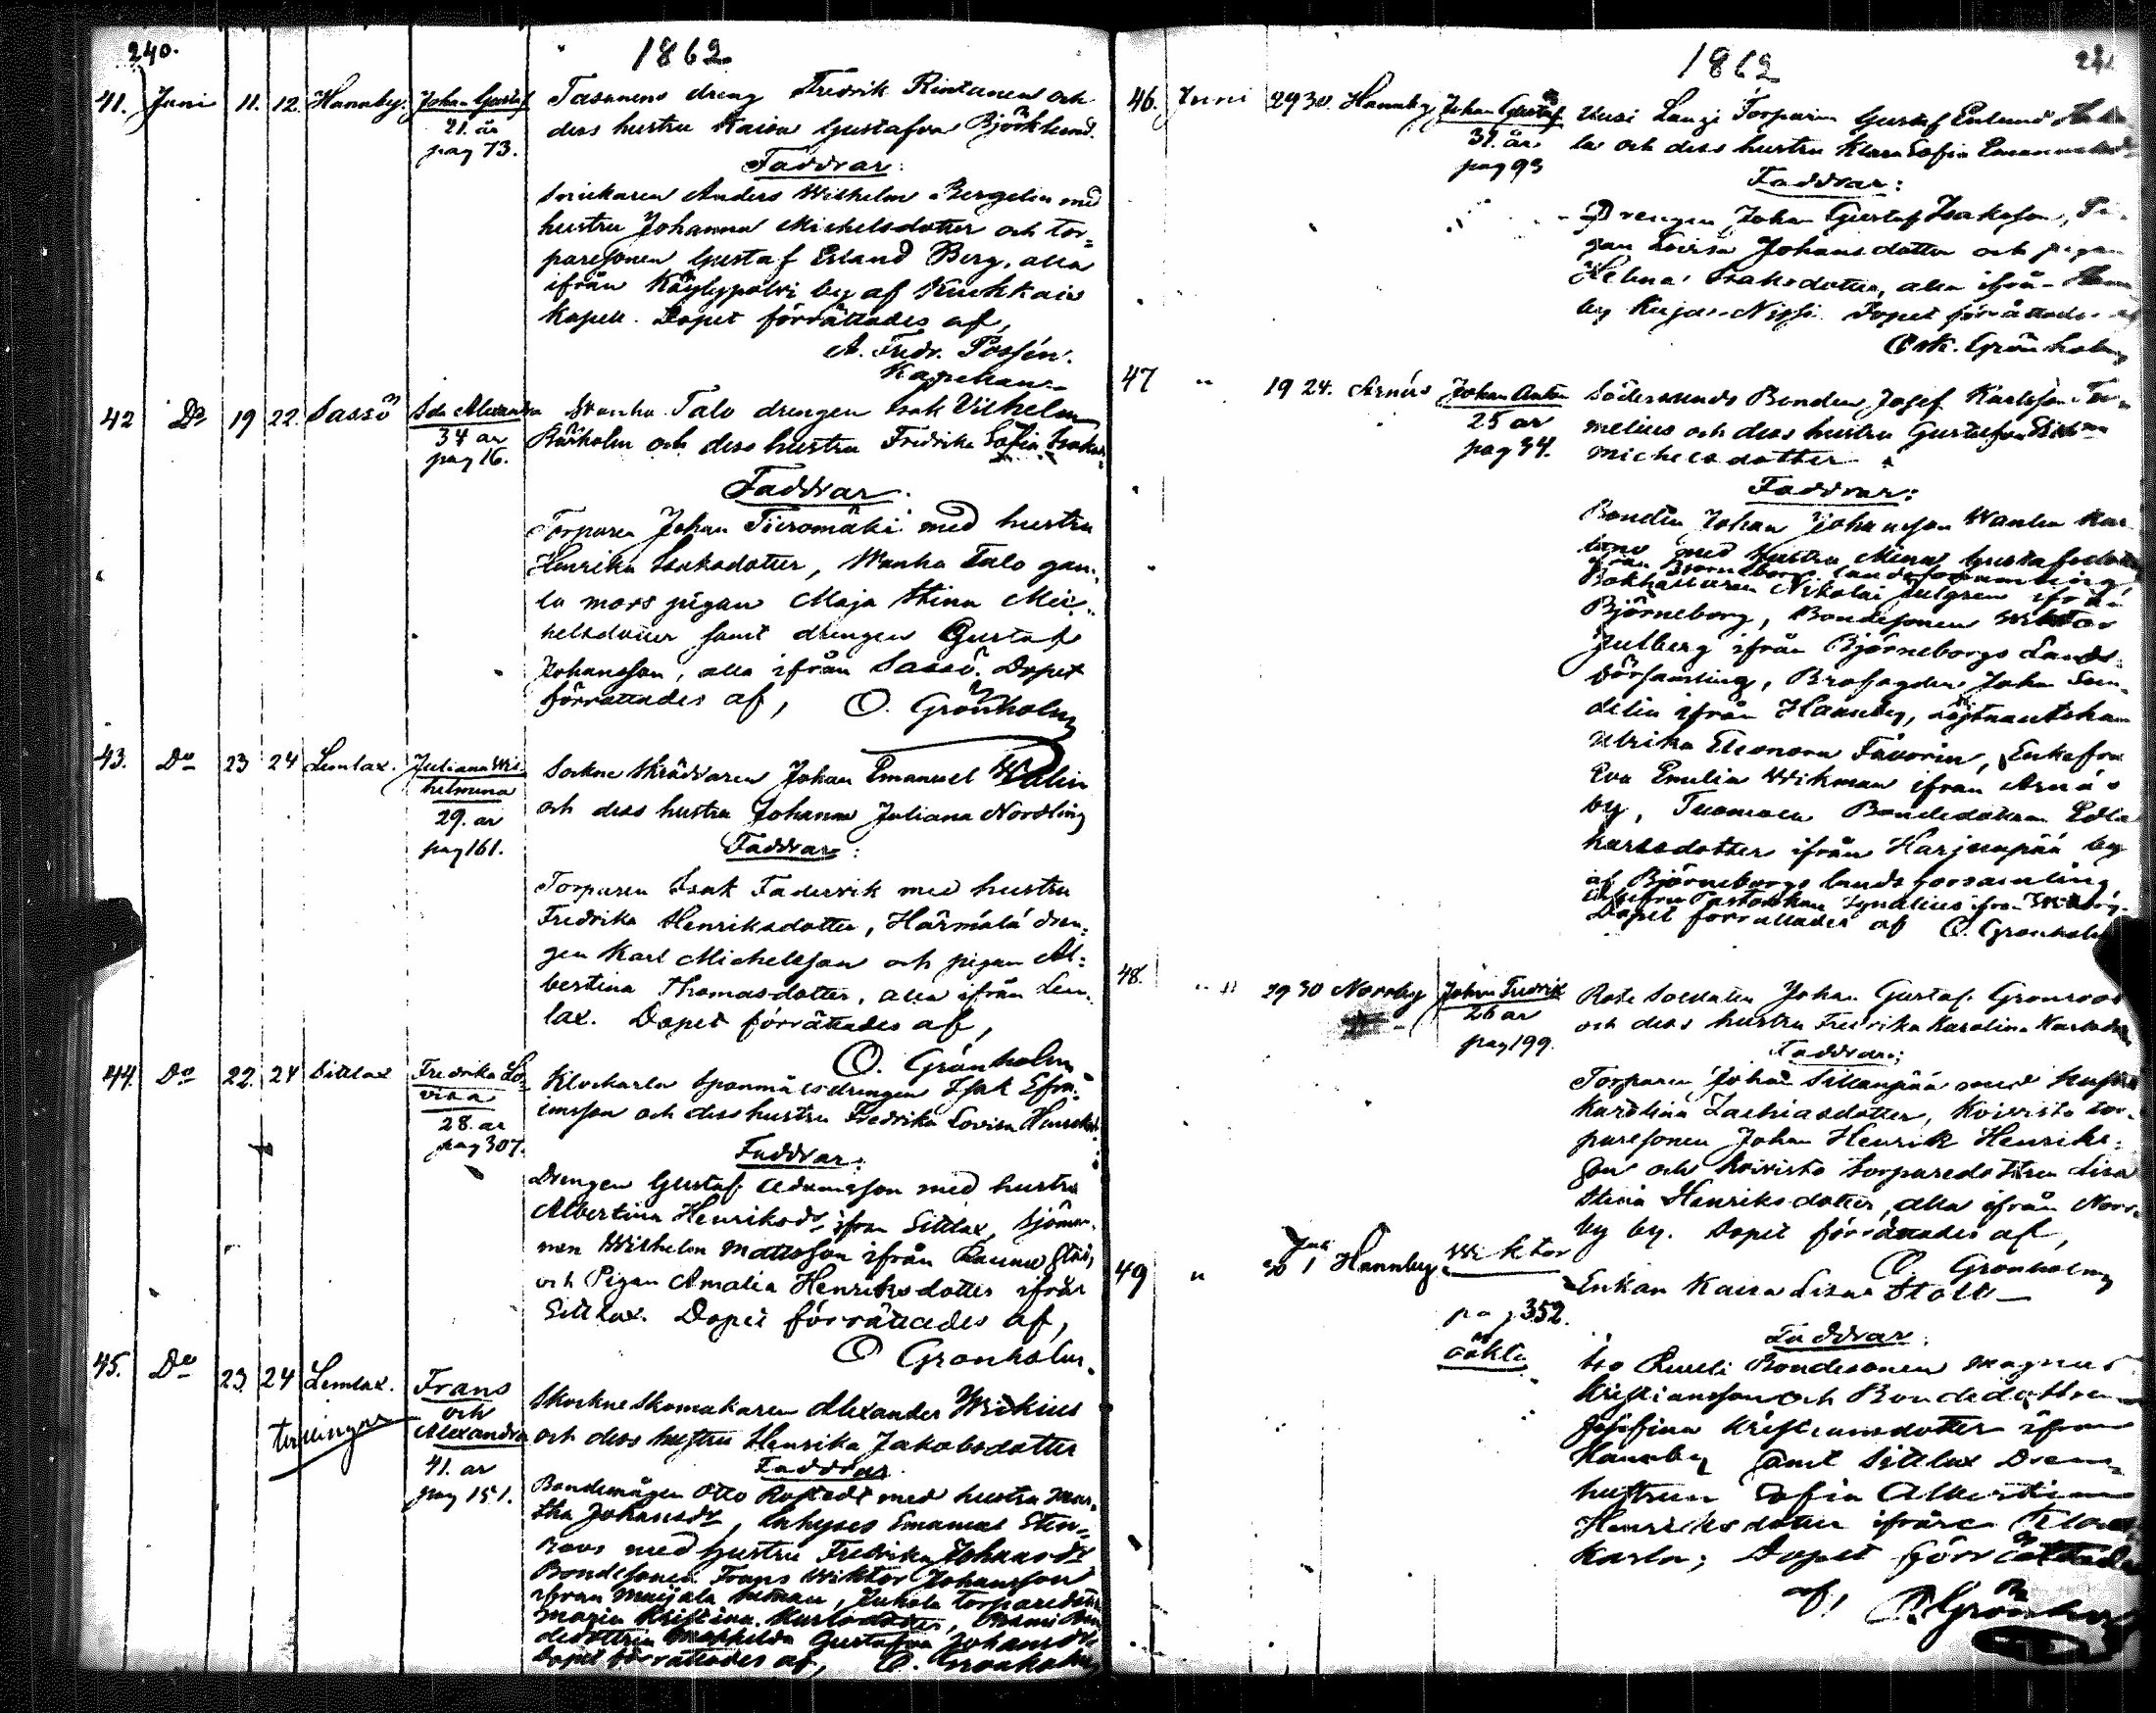 240.
1862
41. Juni 11. 12. Hannby. Johan Gustaf
21. år
pag 73.
Tasanens dreng Fredrik Rintanen och
dess hustru Kaisa Gustafva Björklund.
Faddrar:
Snickaren Anders Wilhelm Bergelin med
hustru Johanna Michelsdotter och tor=
paresonen Gustaf Erland Berg, alla
ifrån by af
kapell. Dopet förrättades af,
A. Fredr. Possén.
Kapellan
42 Do 19 22. Sassö Ida Alexandra
34 år
pag 16.
Wanha Talo drengen Isak Vilhelm
och dess hustru Fredrika Sofia Isaks
Faddrar:
Torparen Johan Tiiromäki med hustru
Henrika Isaksdotter, Wanha Talo gam=
la mors pigan Maja Stina Mic=
helsdotter samt drengen Gustaf
Johansson, alla ifrån Sassö. Dopet
förrättades af, O. Grönholm
43. Do 23 24 Lemlax. Juliana Wil=
helmina
29. år
pag 161.
Sockne Skräddaren Johan Emanuel Walin
och dess hustru Johanna Juliana Nordling
Faddrar:
Torparen Isak Fadervik med hustru
Fredrika Henriksdotter, Härmälä dren=
gen Karl Michelsson och pigan Al=
bertina Thomasdotter, alla ifrån Lem=
lax. Dopet förrättades af,
O. Grönholm
44. Do 22. 24 Sittlax Fredrika Lo=
visa
28. år
pag 307.
Klockarla Spanmålsdrengen Isak Efra=
imsson och dess hustru Fredrika Lovisa Henriksd:
Faddrar:
Drengen Gustaf Adamsson med hustru
Albertina Henriksdr ifrån Sittlax, Sjöman=
nen Wilhelm Mattsson ifrån Raumo stad,
och Pigan Amalia Henriksdotter ifrån
Sittlax. Dopet förrättades af,
O Grönholm.
45. Do 23. 24 Lemlax. Frans
och
Alexandra
tvillingar
41. år
pag 151.
Skomakaren Alexander
och dess hustru Henrika Jakobsdotter
Faddrar
Bondemågen Otto med hustru Mar=
tha Johansdr, Emanuel Sten=
roos med hustru Fredrika Johansdr
Bondesonen Frans Wiktor Johansson
ifrån Juhola torparedotter
Maria Kristina Karlsdotter,
Gustafva Johansdr
Dopet förrättades af, O. Grönholm
1862
46. Juni 29 30. Hannby Johan Gustaf
31. år
pag 93
Uusi Lanzi Torparen Gustaf Enlund
la och dess hustru Klara Sofia
Faddrar:
Drengen Johan Gustaf Isaksson, Pi=
gan Lovisa Johansdotter och pigan
Helena Isaksdotter, alla ifrån
by Dopet förrättades af
Osk. Grönholm
47 " 19 24. Arnäs Johan Anton
25 år
pag 34.
Södersunds Bonden Josef Karlsson
melius och dess hustru Gustafva
Michelsdotter
Faddrar:
Bonden Johan Johansson Wanha
med hustru Mina Gustafsdotter
ifrån Björneborgs landsförsamling
Bokhållaren Nikolai ifrån
Björneborg, Bondesonen Wiktor
ifrån Björneborgs Lands=
församling, Brofogden Johan Sun=
delin ifrån Hannby, Löjtnantskan
Ulrika Eleonora Favorin, Enkefru
Eva Emilia Wikman ifrån Arnäs
by, Tuomola Bondedottren Edla
Karlsdotter ifrån Harjunpää by
af Björneborgs landsförsamling,
Enkefru Pastorskan Ignatius ifrån
Dopet förrättades af O. Grönholm
48. " 29 30 Norrby Johan Fredrik
26 år
pag 199.
Rote Soldaten Johan Gustaf Grönroos
och dess hustru Fredrika Karolina Karlsdr
Faddrar:
Torparen Johan Sillanpää med hustru
Karolina Zachiasdotter, Koivisto tor=
paresonen Johan Henrik Henriks=
son och Koivisto torparedottren Lisa
Stina Henriksdotter, alla ifrån Norr=
by by. Dopet förrättades af,
O. Grönholm
49 " 30 Juli 1 Hannby. Wiktor
pag 352.
oäkta
Enkan Kaisa Lisa Stolt
Faddrar:
Iso Bondesonen Magnus
Kristiansson och Bondedottren
Josefina Kristiansdotter ifrån
Hannby samt Sittlax Dreng
hustrun Sofia Albertina
Henriksdotter ifrån Klock
karla; Dopet förrättades
af, O. Grönholm